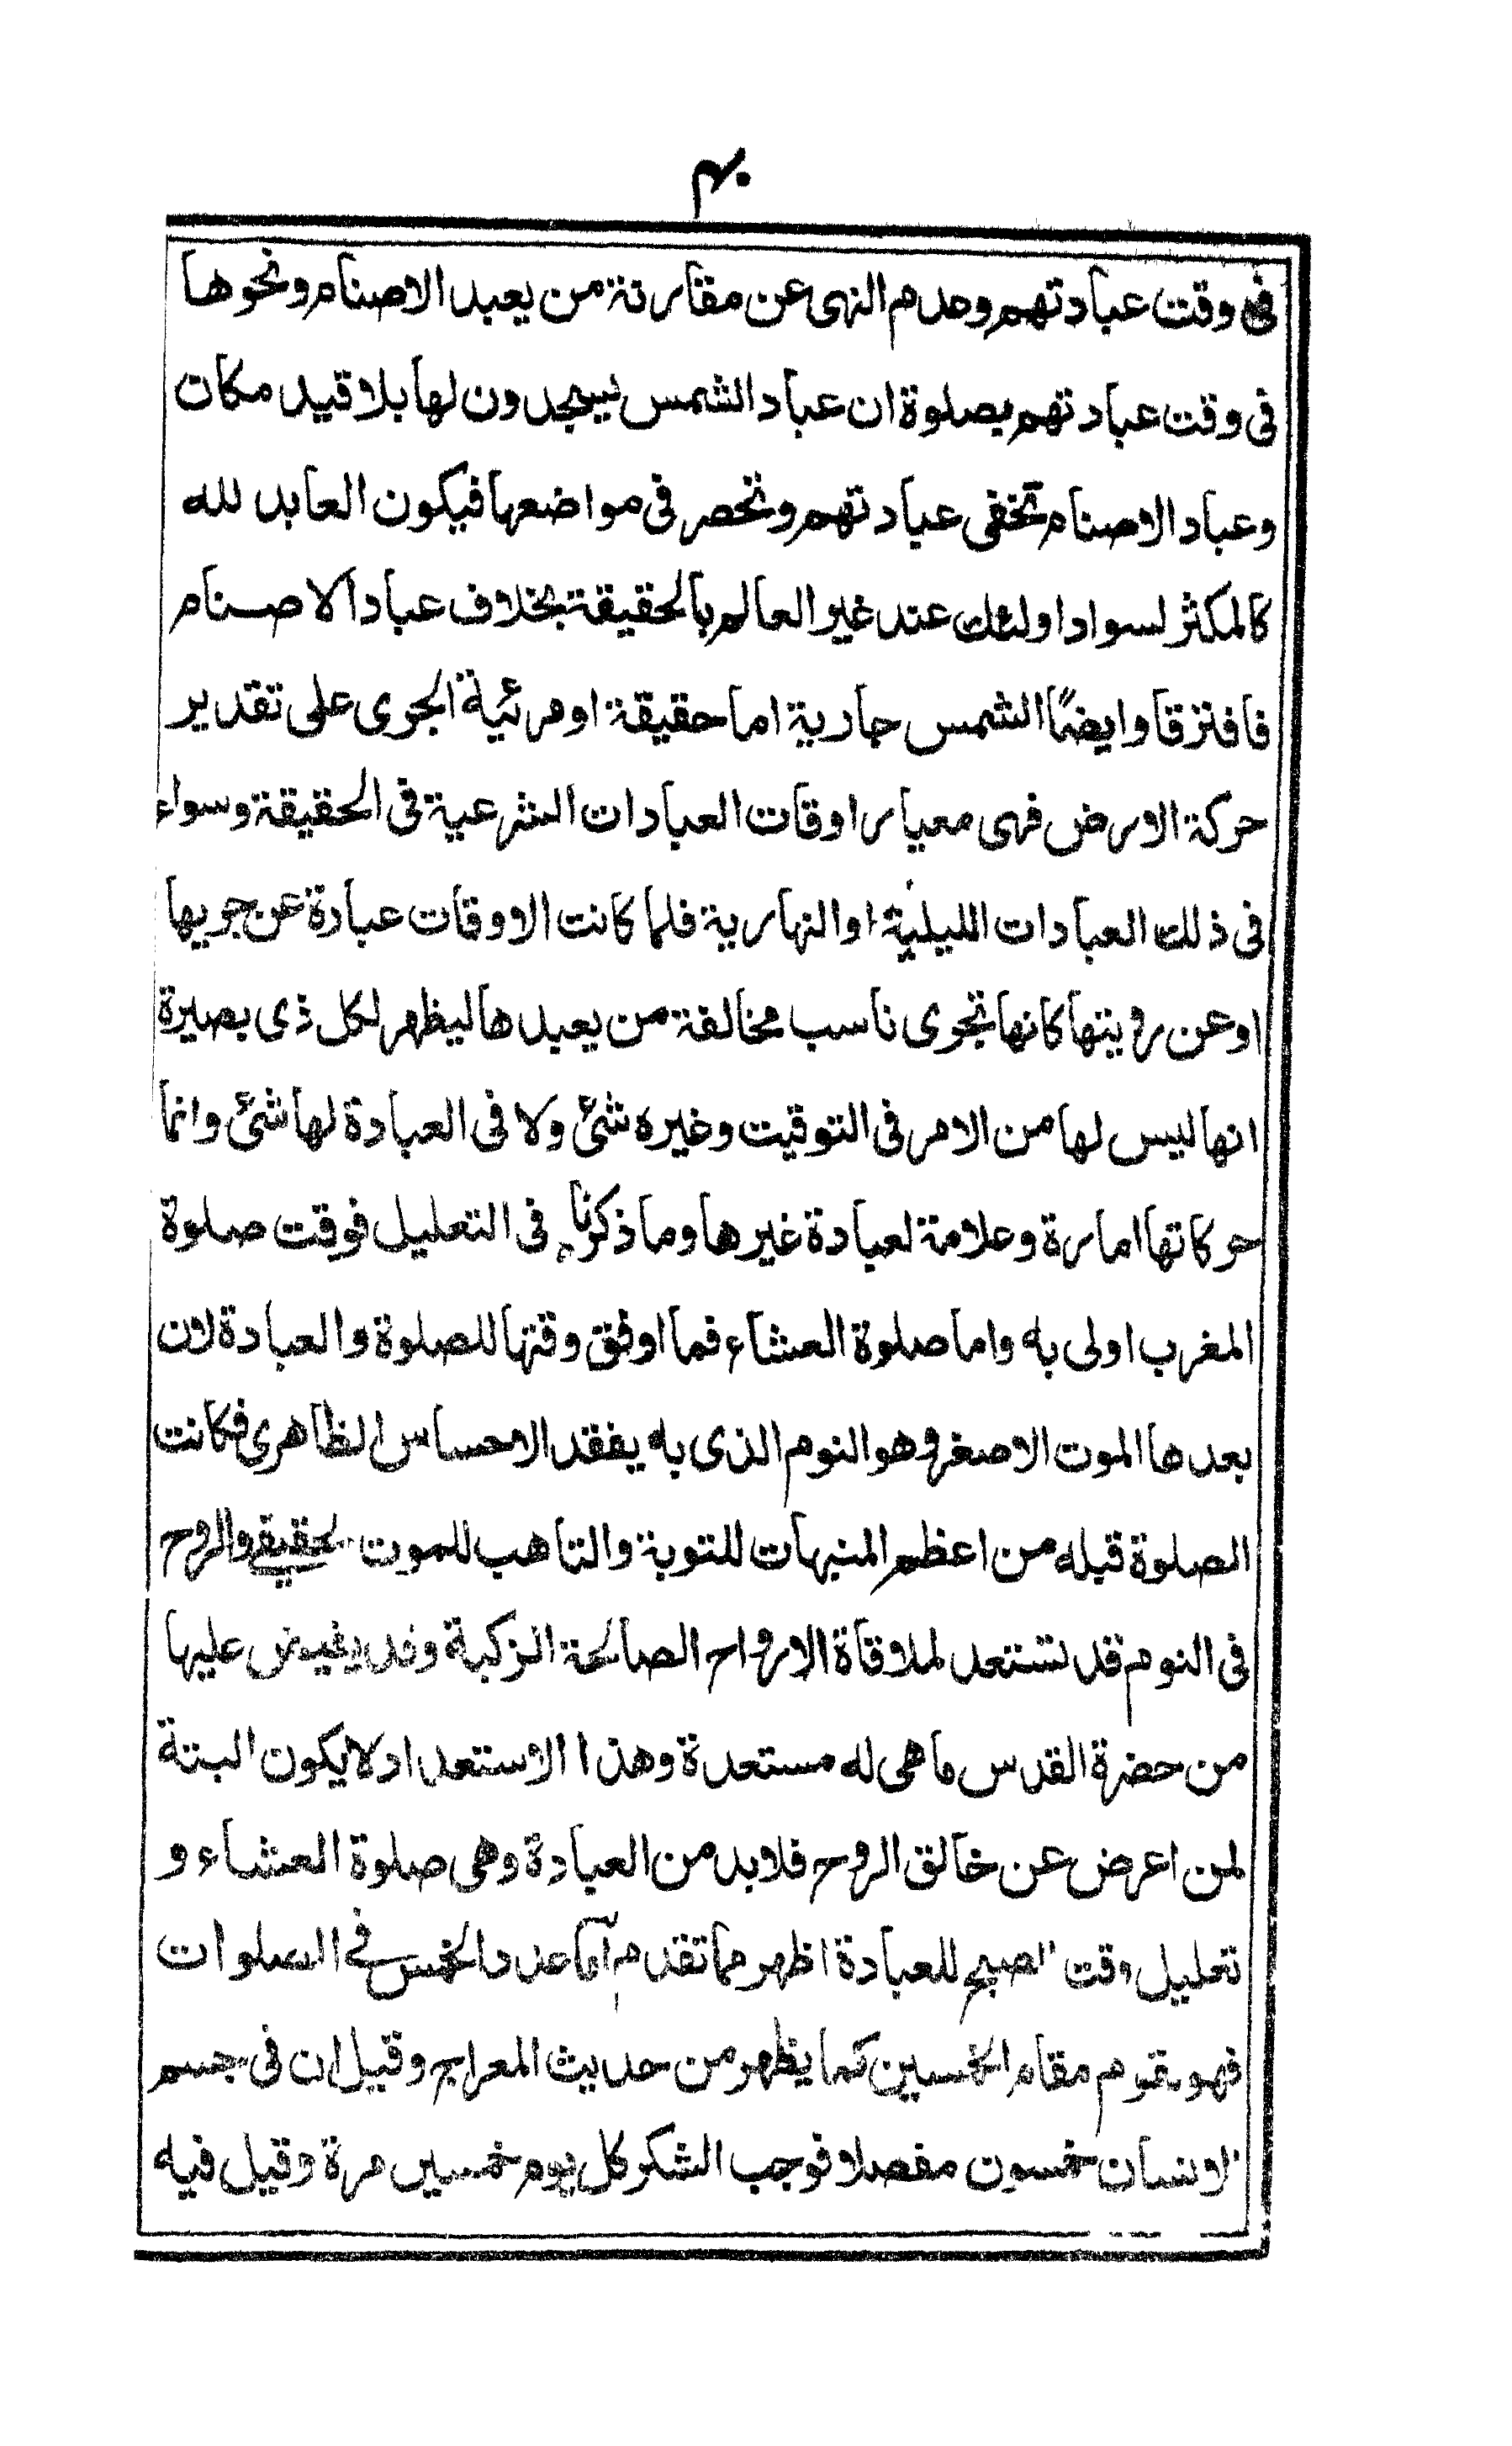 ٤٠
فى وقت عبادتهم وعدم النهى عن مقارنة من يعبد الاصنام ونحوها
فى وقت عبادتهم بصلوة ان عباد الشمس يسجدون لها بلا قيد مكان
وعباد الاصنام تخفى عبادتهم وتحصر فى مواضعها فيكون العابد لله
كالمكثر لسواد اولئك عند غير العالم بالحقيقة بخلاف عباد الاصنام
فافترقا وايضًا الشمس جارية اما حقيقة او مرئية الجرى على تقدير
حركة الارض فهى معيار اوقات العبادات الشرعية فى الحقيقة وسواء
فى ذلك العبادات الليلية او النهارية فلما كانت الاوقات عبارة عن جريها
او عن رؤيتها كانها تجرى ناسب مخالفة من يعبدها ليظهر لكل ذى بصيرة
انها ليس لها من الامر فى التوقيت وغيره شئ ولا فى العبادة لها شئ وانما
حركاتها امارة وعلامة لعبادة غيرها وما ذكرنا فى التعليل فوقت صلوة
المغرب اولى به واما صلوة العشاء فما اوفق وقتها للصلوة والعبادة لان
بعدها الموت الاصغر وهو النوم الذى به يفقد الاحساس الظاهرى فكانت
الصلوة قبله من اعظم المنبهات للتوبة والتاهب للموت الحقيقى والروح
فى النوم قد تستعد لملاقاة الارواح الصالحة الزكية وقد يفيض عليها
من حضرة القدس ما هى له مستعدة وهذا الاستعداد لا يكون البتة
لمن اعرض عن خالق الروح فلا بد من العبادة وهى صلوة العشاء و
تعليل وقت الصبح للعبادة اظهر مما تقدم اما عدد الخمس فى الصلوات
فهو يقوم مقام الخمسين كما يظهر من حديث المعراج وقيل ان فى جسم
الانسان خمسون مفصلا فوجب الشكر كل يوم خمسين مرة وقيل فيه